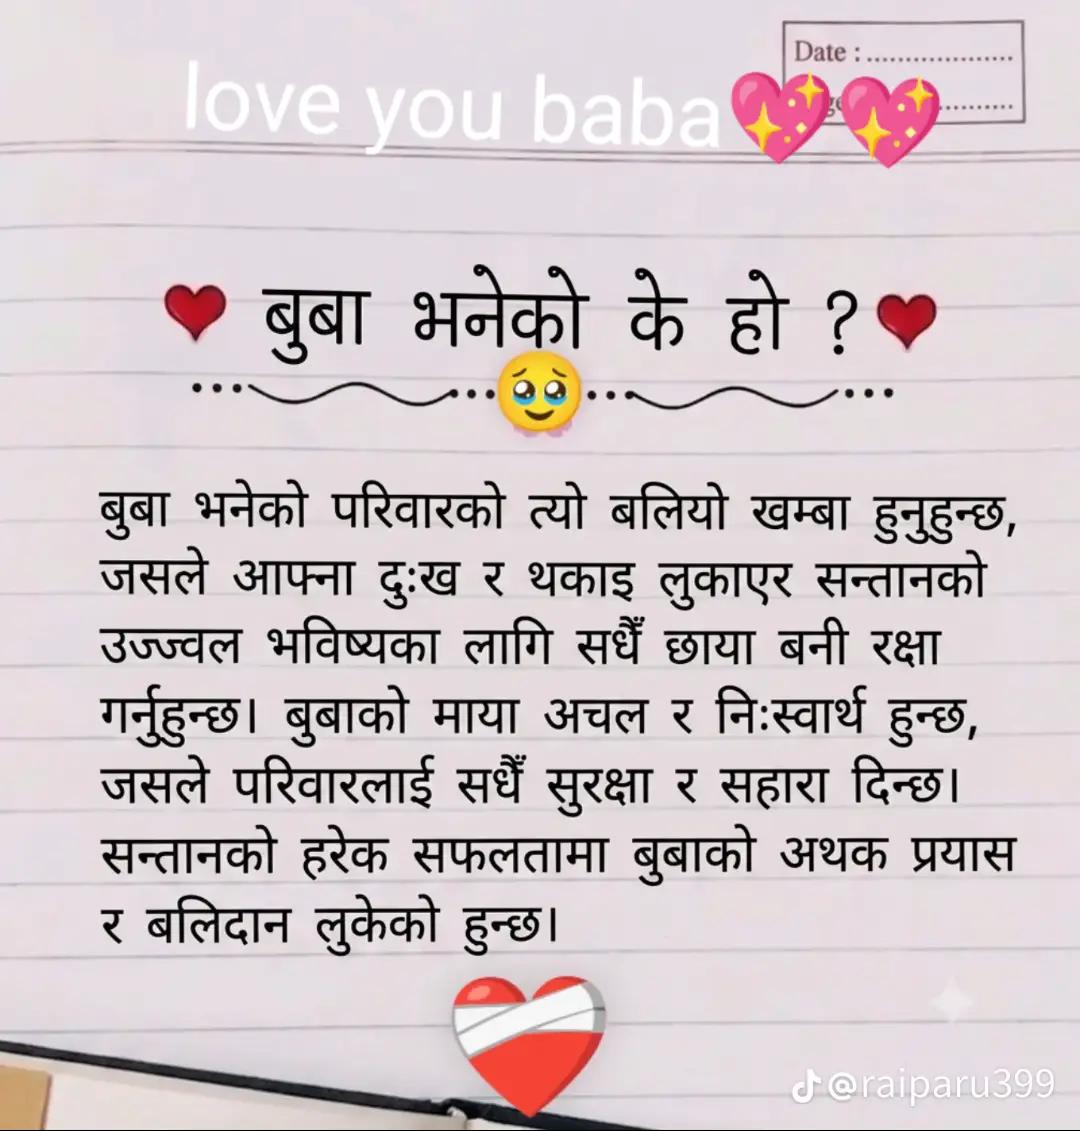 Date : ....................
love you baba💖💖
❤️ बुबा भनेको के हो ? ❤️
बुबा भनेको परिवारको त्यो बलियो खम्बा हुनुहुन्छ,
जसले आफ्ना दुःख र थकाइ लुकाएर सन्तानको
उज्ज्वल भविष्यका लागि सधैँ छाया बनी रक्षा
गर्नुहुन्छ। बुबाको माया अचल र निःस्वार्थ हुन्छ,
जसले परिवारलाई सधैँ सुरक्षा र सहारा दिन्छ।
सन्तानको हरेक सफलतामा बुबाको अथक प्रयास
र बलिदान लुकेको हुन्छ।
@raiparu399